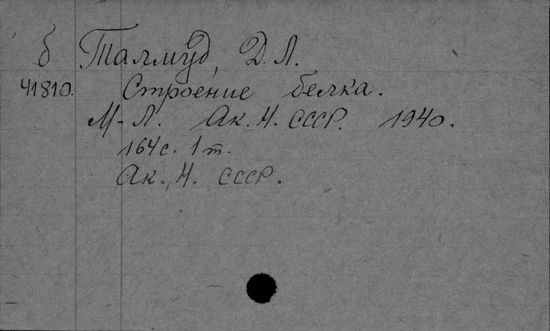 б Талмуд, Д. Л.
41810. Строение белка.
М-Л. Ак. Н. СССР. 1940.
164 с. 1 т.
Ак., Н. СССР.